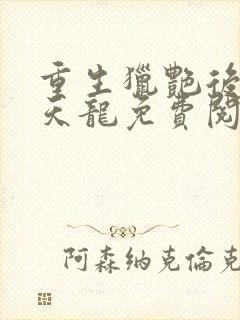 重生獵艷後
天龍免費閱
阿森纳克倫克